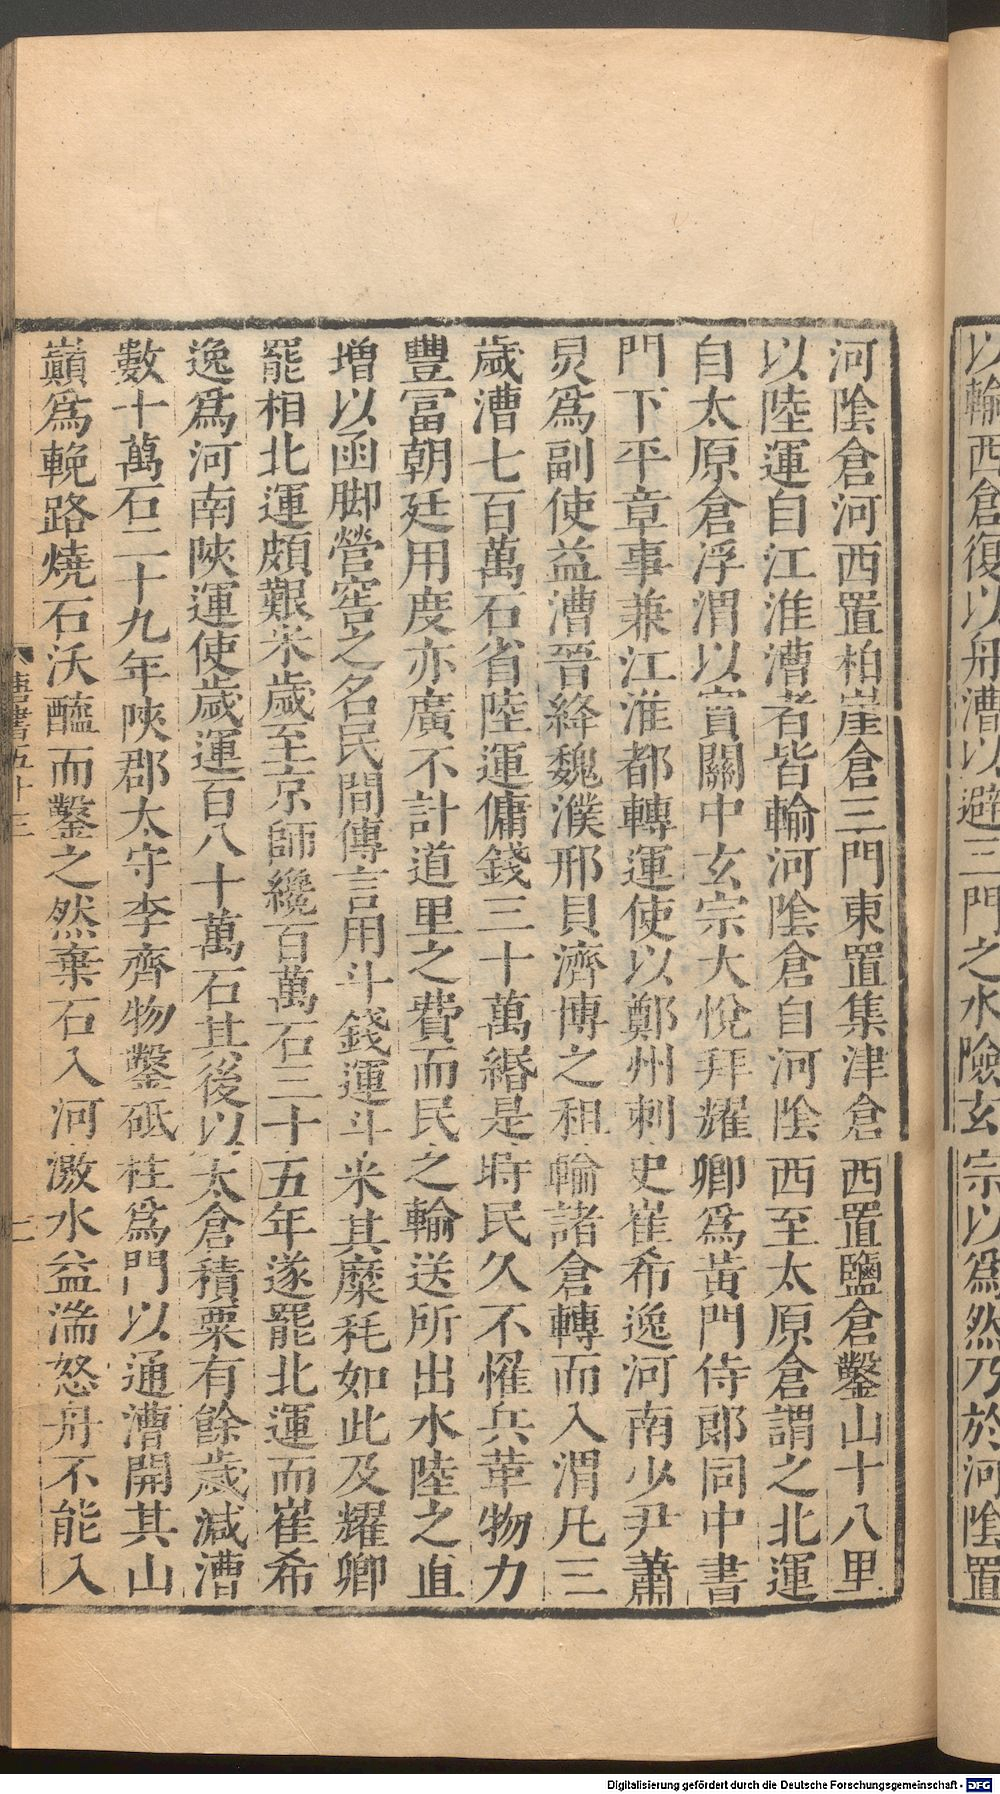 以輸西倉復以舟漕以避三門之水險玄宗以爲然乃於河隂置
河隂倉河西置柏崖倉三門東置集津倉西置鹽倉鑿山十八里
以陸運自江淮漕者皆輸河隂倉自河隂西至太原倉謂之北運
自太原倉浮渭以實關中玄宗大悅拜耀卿爲黃門侍郎同中書
門下平章事兼江淮都轉運使以鄭州刺史崔希逸河南少尹蕭
炅爲副使益漕晉絳魏濮邢貝濟博之租輸諸倉轉而入渭凡三
歲漕七百萬石省陸運傭錢三十萬緡是時民久不罹兵革物力
豐富朝廷用度亦廣不計道里之費而民之輸送所出水陸之直
增以函脚營窖之名民間傳言用斗錢運斗米其糜耗如此及耀卿
罷相北運頗艱米歲至京師纔百萬石二十五年遂罷北運而崔希
逸爲河南陝運使歲運百八十萬石其後以太倉積粟有餘歲減漕
數十萬石二十九年陝郡太守李齊物鑿砥柱爲門以通漕開其山
巔爲輓路燒石沃醯而鑿之然棄石入河激水益湍怒舟不能入
唐書五十三
二
Digitalisierung gefördert durch die Deutsche Forschungsgemeinschaft - DFG